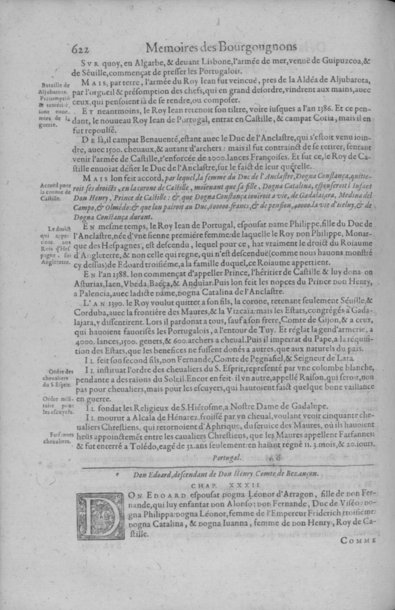 622 Memoires des Bourgongnons
SVR quoy, en Algarbe, & deuant Lisbone, l'armée de mer, venuë de Guipuzcoa, &
de Séuille, commençat de presser les Portugalois.
MAIS, par terre, l'armée du Roy Iean fut veincuë, pres de la Aldéa de Aljubarota,
par l'orgueil & présomption des chefs, qui en grand desordre, vindrent aux mains, auec
ceux, qui pensoient ià de se rendre, ou composer.
ET neantmoins, le Roy Iean retenoit son tiltre, voire iusques a l'an 1386. Et ce pen-
dant, le nouueau Roy Iean de Portugal, entrat en Castille, & campat Coria, mais il en
fut repoussé.
DE là, il campat Benauenté, estant auec le Duc de l'Anclastre, qui s'estoit venu ioin-
dre, auec 1500. cheuaux, & autant d'archers: mais il fut contrainct de se retirer, sentant
venir l'armée de Castille, r'enforcée de 2000. lances Françoises. Et fut ce, le Roy de Ca-
stille enuoiat défier le Duc de l'Anclastre, sur le faict de leur quérelle.
MAIS lon feit accord, par lequel, la femme du Duc de l'Anclastre, Dogna Constança, quitte-
roit ses droicts, en la corone de Castille, moienant que sa fille, Dogna Catalina, espouseroit l'Infant
Don Henry, Prince de Castille: & que Dogna Constança iouiroit a vie, de Guadalajara, Medina del
Campo, & Olmédo: & que lon paieroit au Duc, 600000. francs, & de pension, 40000. la vie d'icelluy, & de
Dogna Constança durant.
EN mesme temps, le Roy Iean de Portugal, espousat dame Philippe, fille du Duc de
l'Anclastre, née d'vne sienne premiere femme: de laquelle le Roy don Philippe, Monar-
que des Hespagnes, est descendu, lequel pour ce, hat vraiement le droict du Roiaume
d'Angleterre, & non celle qui regne, qui n'est descenduë (comme nous hauons monstré
cy dessus) de Edoard troisiéme, a la famille duquel, ce Roiaume appertient.
EN l'an 1388. lon commençat d'appeller Prince, l'héritier de Castille & luy donat on
Asturias, Iaen, Vbeda, Baéça, & Andujar. Puis lon feit les nopces du Prince don Henry,
a Palencia, auec ladicte dame, dogna Catalina de l'Anclastre.
L'AN 1390. le Roy voulut quitter a son fils, la corone, retenant seulement Séuille, &
Corduba, auec la frontiére des Maures, & la Vizcaia: mais les Estats, congrégés a Guada-
lajara, y dissentirent. Lors il pardonat a tous, sauf a son frere, Comte de Gijon, & a ceux,
qui hauoient fauorisés les Portugalois, a l'entour de Tuy. Et réglat la gend'armerie, a
4000. lances, 1500. genets, & 600. archers a cheual. Puis il impetrat du Pape, a la réquisi-
tion des Estats, que les benefices ne fussent donés a autres, que aux naturels du païs.
IL feit son second fils, non Fernande, Comte de Pegnafiel, & Seigneur de Lara.
IL instituat l'ordre des cheualiers du S. Esprit, representé par vne colombe blanche,
pendante a des raions du Soleil. Encor en feit-il vn autre, appellé Raison, qui seroit, non
pas pour cheualiers, mais pour les escuyers, qui hauroient faict quelque bone vaillance
en guerre.
IL fondat les Religieux de S. Hiérosme, a Nostre Dame de Gadalupe.
IL mourut a Alcala de Hénares, froissé par vn cheual, voulant veoir cinquante che-
ualiers Chrestiens, qui retornoient d'Aphrique, du seruice des Maures, où ils hauoient
heüs appoinctemēt entre les caualiers Chrestiens, que les Maures appellent Farfannes:
& fut enterré a Tolédo, eagé de 32. ans seulement: en haiant regné 11. 3. mois, & 20. iours.
Bataille de
Aljubarota.
Accord pour
la corone de
Castille.
Le droict
Angleterre.
Ordre des
cheualiers
du S. Esprit.
Ordre mili-
taire pour
les escuyers.
Farfannes
cheualiers.
Portugal.
Don Edoard, descendant de Don Henry Comte de Bezançon.
CHAP. XXXII.
DON EDOARD espousat dogna Léonor d'Arragon, fille de non Fer-
nande, qui luy enfantat don Alonso: don Fernande, Duc de Viséo: do-
gna Philippa: dogna Léonor, femme de l'Empereur Friderich troisiéme:
dogna Catalina, & dogna Iuanna, femme de don Henry, Roy de Ca-
stille.
COMME